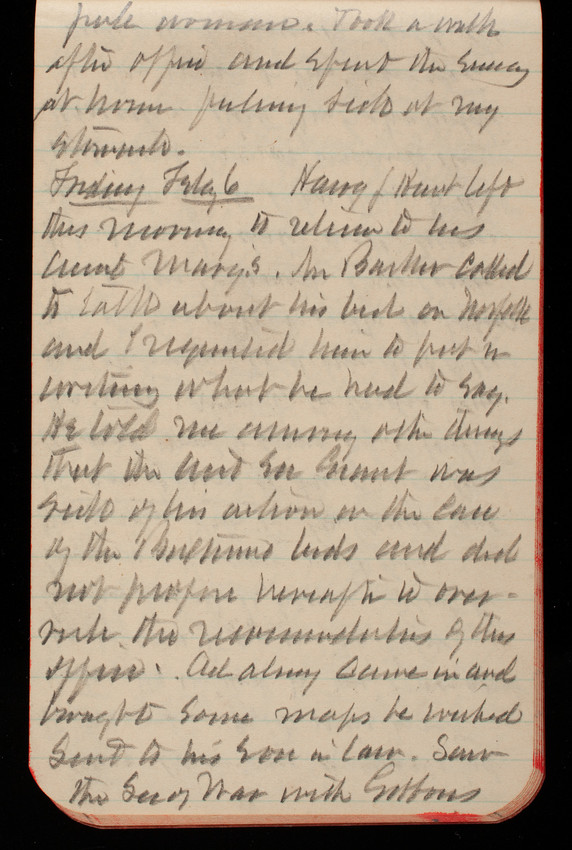 pole woman. Took a walk
after office and spent the evening
at home feeling sick at my
stomach.
Friday Feby 6 Harry / Kent left
this morning to return to his
Aunt Mary's. Mr Barker called
to talk about his bid on Norfolk
and I requested him to put in
writing what he had to say.
He told me among other things
that the Asst Sec Grant was
sick of his action on the case
of the bids and did
not propose hereafter to over-
rule the recommendations of this
office. came in and
brought some maps he wished
sent to his son in law. Saw
the Sec of War with Gibbons